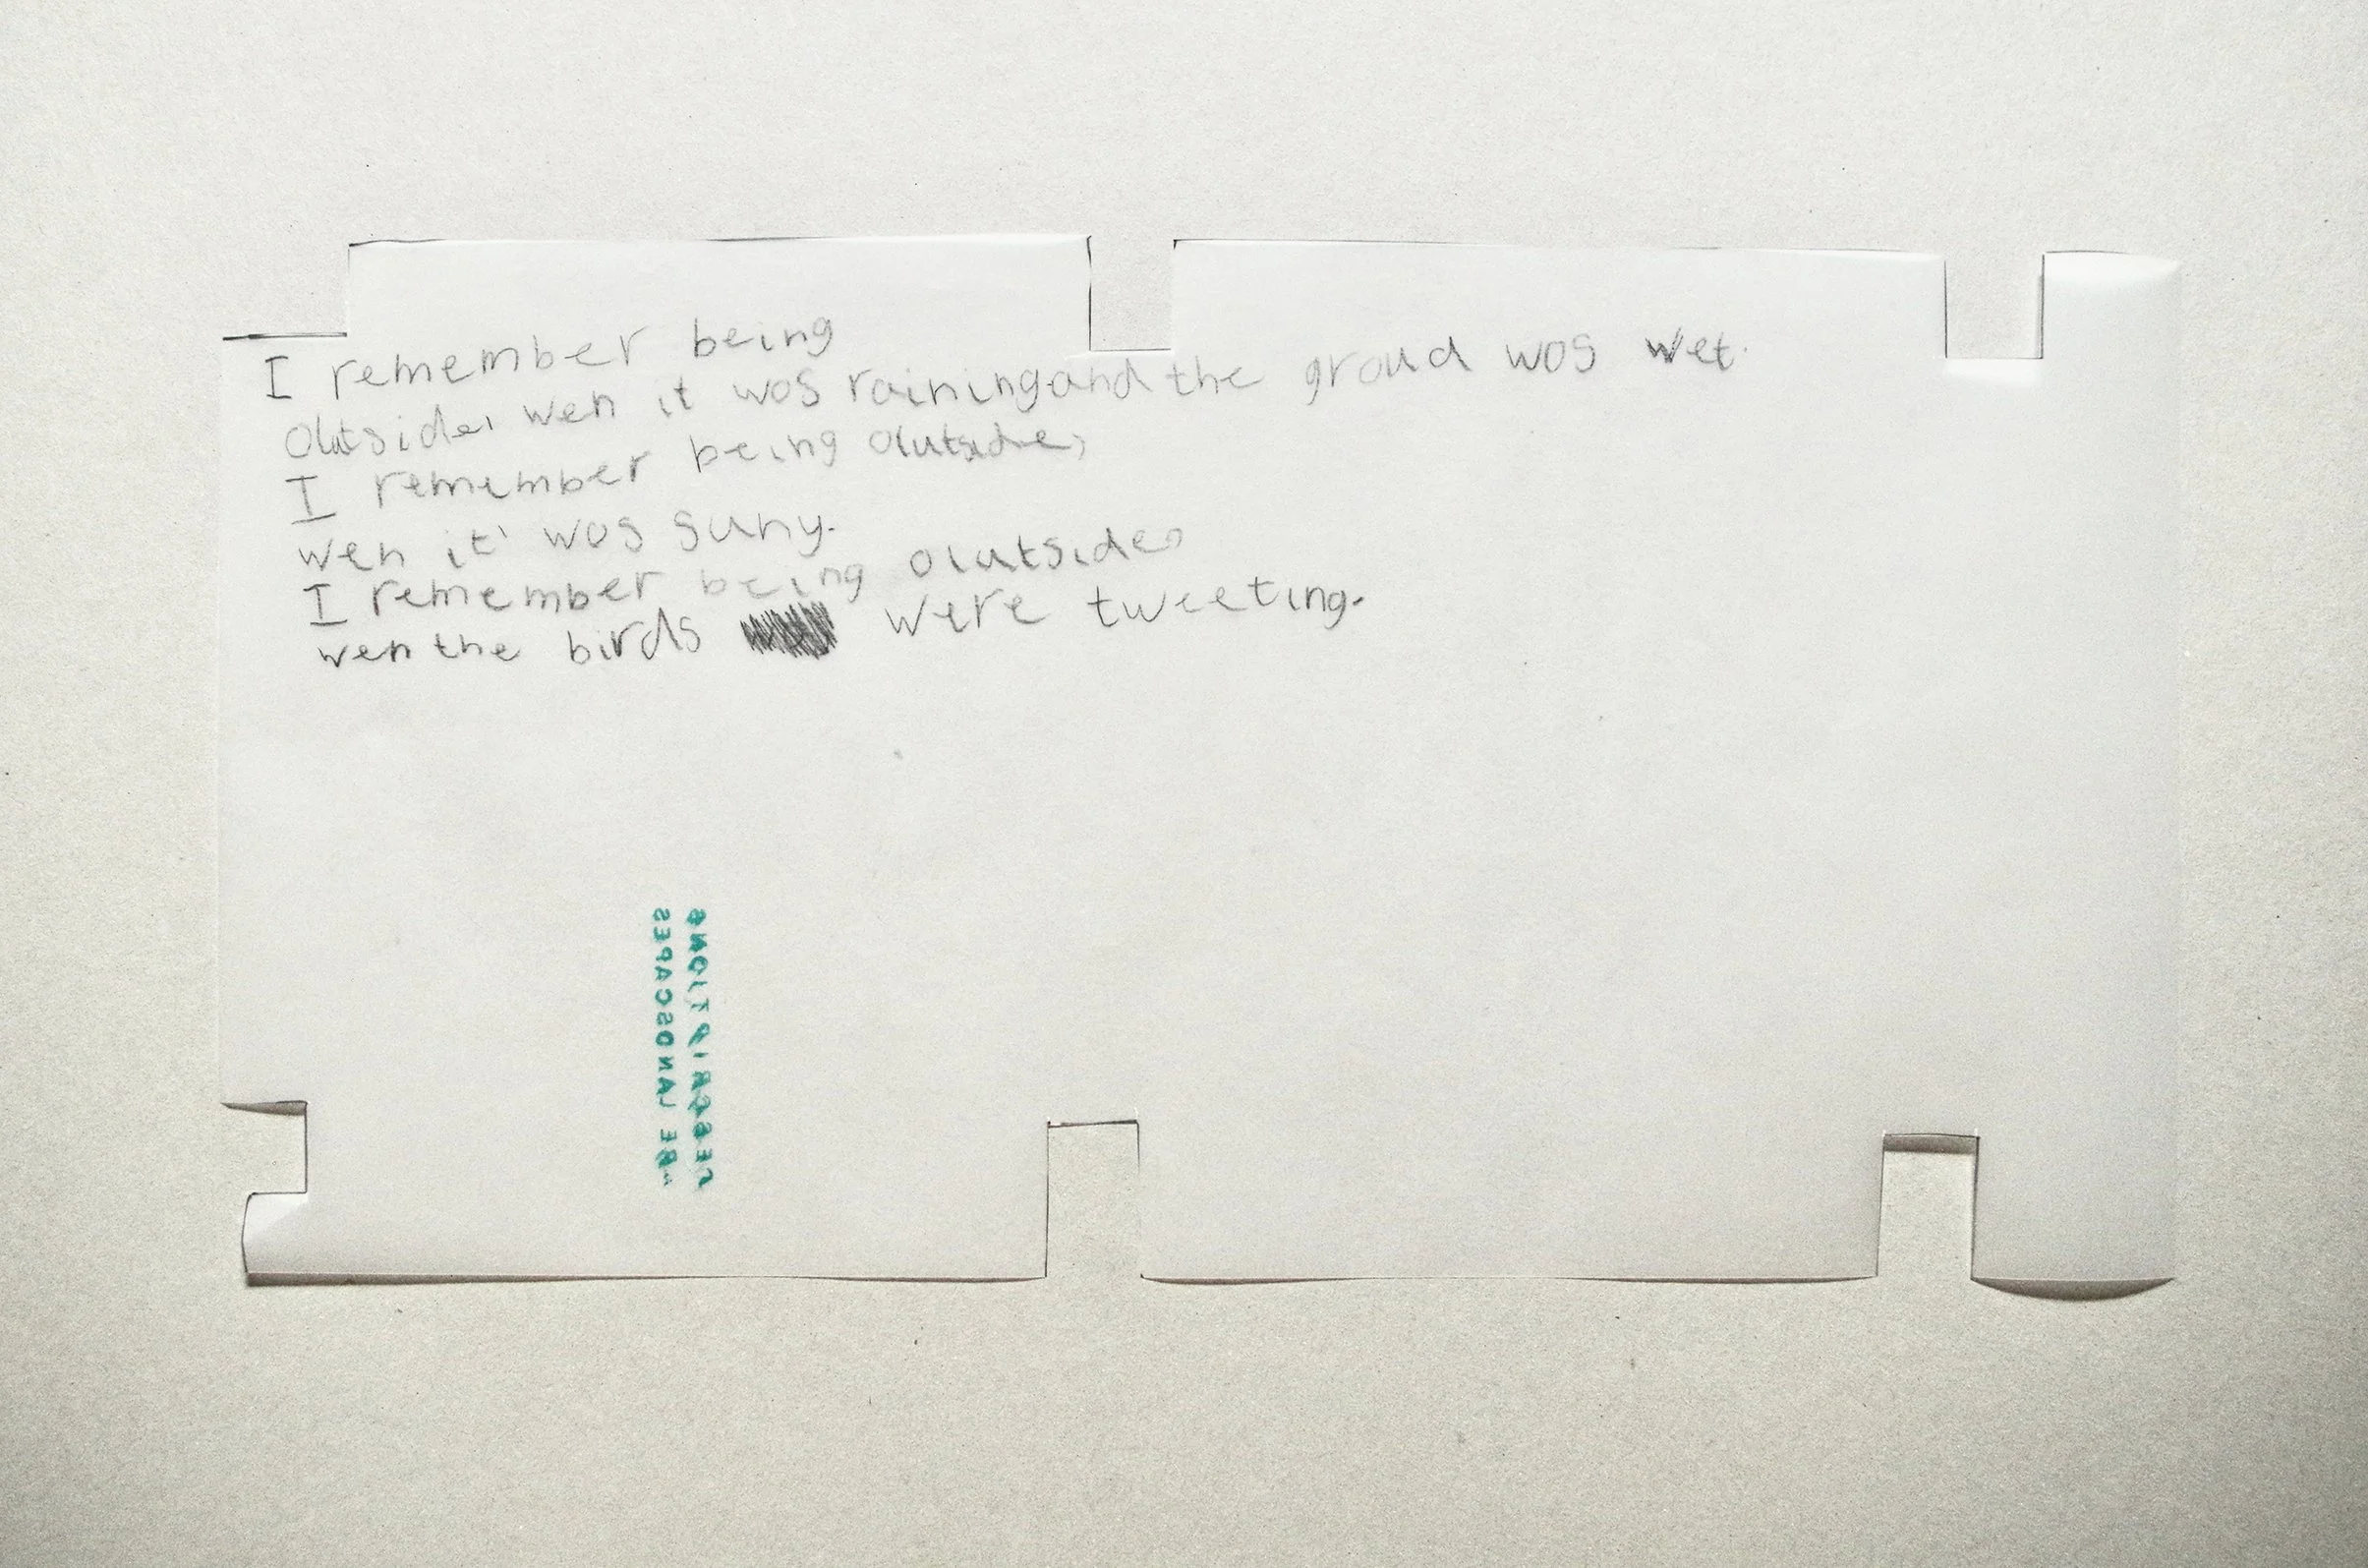 I remember being
olutside, wen it wos raining and the groud wos wet.
I remember being olutside,
wen it wos suny.
I remember being olutside,
wen the birds were tweeting.